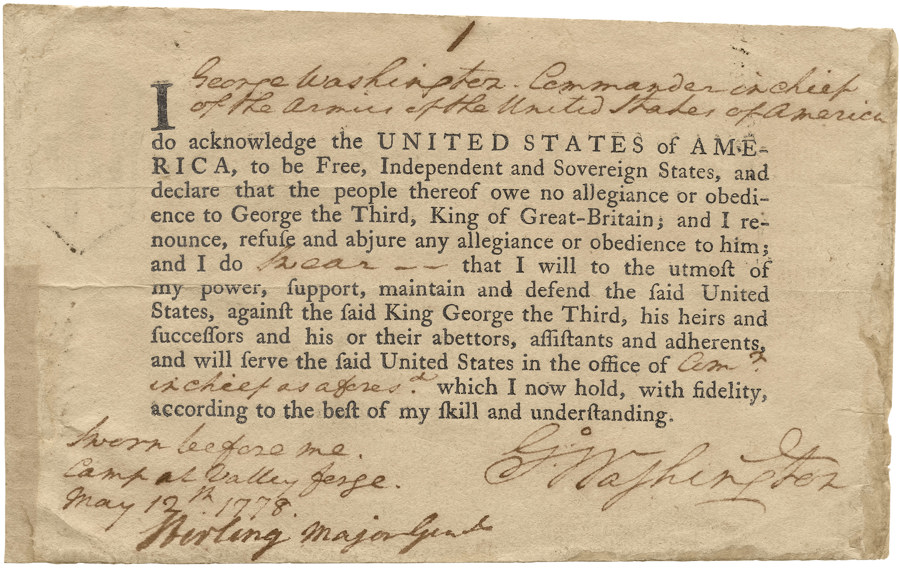 1
George Washington Commander in chief
of the Armies of the United States of America
I
do acknowledge the UNITED STATES of AME-
RICA, to be Free, Independent and Sovereign States, and
declare that the people thereof owe no allegiance or obedi-
ence to George the Third, King of Great-Britain; and I re-
nounce, refuſe and abjure any allegiance or obedience to him;
and I do swear — — that I will to the utmoſt of
my power, ſupport, maintain and defend the ſaid United
States, againſt the ſaid King George the Third, his heirs and
ſucceſſors and his or their abettors, aſſiſtants and adherents,
and will ſerve the ſaid United States in the office of Comr.
in chief as aforesd. which I now hold, with fidelity,
according to the beſt of my ſkill and underſtanding.
Sworn before me.
Camp at Valley forge.
May 12th. 1778.
Stirling Major Genl
Go Washington